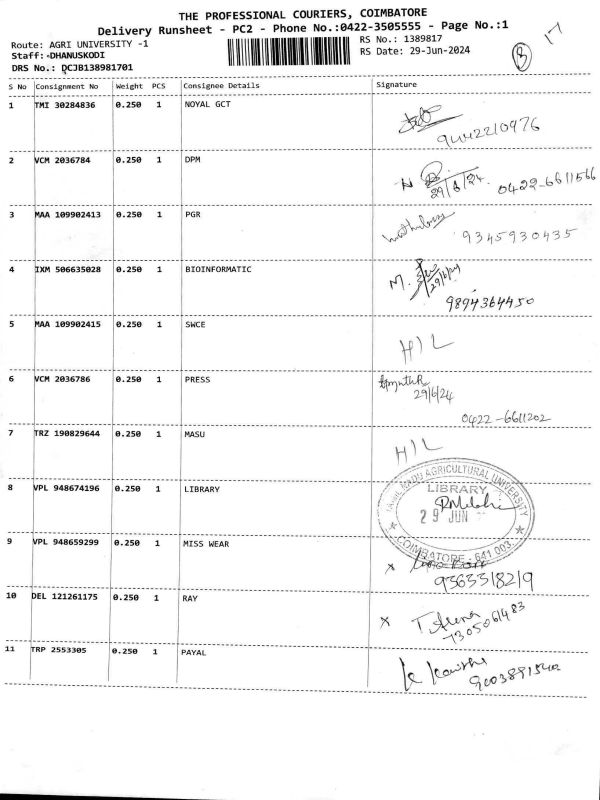 THE PROFESSIONAL COURIERS, COIMBATORE
Delivery Runsheet - PC2 - Phone No.:0422-3505555 - Page No.:1
Route: AGRI UNIVERSITY -1
RS No.: 1389817
Staff:-DHANUSKODI
RS Date: 29-Jun-2024
DRS No.: DCJB138981701
B 17
S No Consignment No Weight PCS Consignee Details Signature
1 TMI 30284836 0.250 1 NOYAL GCT
9442210976
2 VCM 2036784 0.250 1 DPM
29/6/24 0422-6611566
3 MAA 109902413 0.250 1 PGR
9345930435
4 IXM 506635028 0.250 1 BIOINFORMATIC
M. 29/6/24
9894364450
5 MAA 109902415 0.250 1 SWCE
H/L
6 VCM 2036786 0.250 1 PRESS
29/6/24
0422-6611202
7 TRZ 190829644 0.250 1 MASU
H/L
8 VPL 948674196 0.250 1 LIBRARY
TAMIL NADU AGRICULTURAL UNIVERSITY
LIBRARY
29 JUN
COIMBATORE - 641 003
9 VPL 948659299 0.250 1 MISS WEAR
x
9363318219
10 DEL 121261175 0.250 1 RAY
x
7305061483
11 TRP 2553305 0.250 1 PAYAL
9003891542